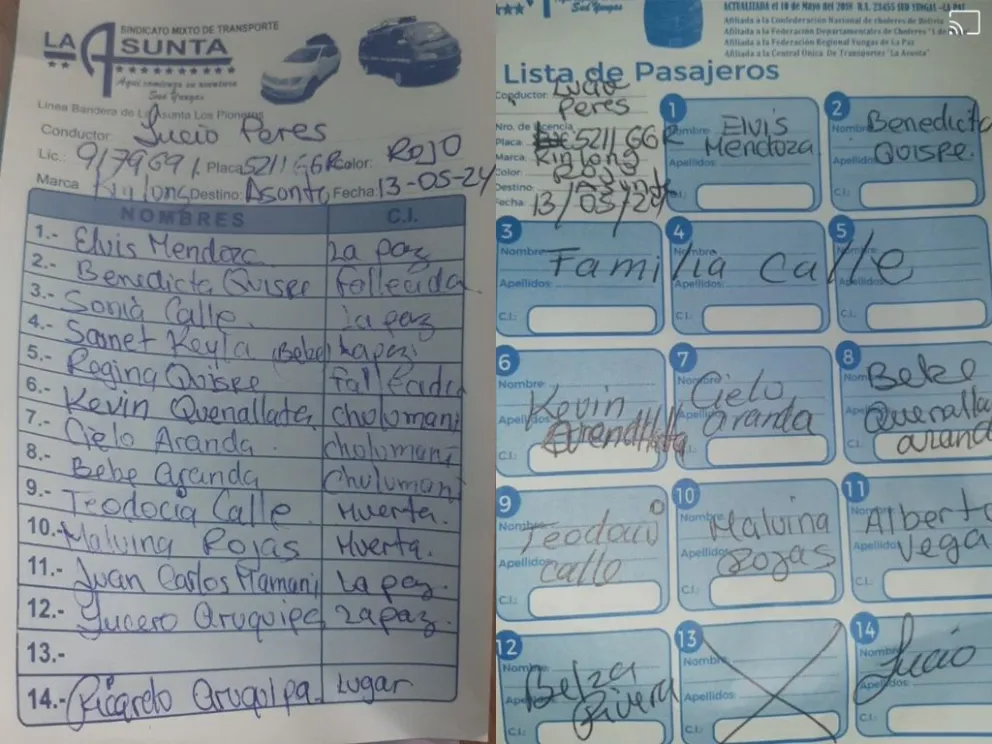 SINDICATO MIXTO DE TRANSPORTE
LA ASUNTA
Aqui comienza su aventura
Sud Yungas
Linea Bandera de La Asunta Los Pioneros
Conductor: Lucio Peres
Lic.: 9179691 Placa 5211GGR Color: ROJO
Marca Kinlong Destino: Asonta Fecha: 13-05-24
NOMBRES C.I.
1.- Elvis Mendoza La paz
2.- Benedicta Quispe fallecida
3.- Sonia Calle La paz
4.- Sannet Keyla (Bebe) La paz
5.- Regina Quispe fallecida
6.- Kevin Quenallata cholumani
7.- Cielo Aranda cholumani
8.- Bebe aranda Chulumani
9.- Teodocia Calle Muerta.
10.- Malvina Rojas Muerta.
11.- Juan Carlos Mamani La paz.
12.- Lucero Aruquipa La paz.
13.-
14.- Ricardo Aruquipa. Lugar
Sud Yungas
ACTUALIZADA el 10 de Mayo del 2018 R.A. 23455 SUD YUNGAS -LA PAZ
Afiliada a la Confederación Nacional de choferes de Bolivia
Afiliada a la Federación Departamentales de Choferes "1 de
Afiliada a la Federación Regional Yungas de La Paz
Afiliada a la Central Única De Transportes "La Asunta"
Lista de Pasajeros
Conductor: Lucio Peres
Nro. de licencia
Placa 5211GGR
Marca: Kinlong
Color: Rojo
Destino:
Fecha: 13/05/24
1
Nombre: Elvis
Mendoza
Apellidos:
C.I.:
2
Nombre: Benedicta
Apellidos: QUISPE.
C.I.:
3 4 5
Nombre: Nombre: Nombre:
Familia Calle
Apellidos: Apellidos: Apellidos:
C.I.: C.I.: C.I.:
6
Nombre:
Kevin
Apellidos:
C.I.:
7
Nombre: Cielo
Apellidos: aranda
C.I.:
8
Nombre: Bebe
Apellidos: Quenalla
C.I.: arand
9
Nombre:
Apellidos: calle
C.I.:
10
Nombre: Malvina
Apellidos: Rojas
C.I.:
11
Nombre: Alberto
Apellidos: Vega
C.I.:
12
Nombre:
Belza
Apellidos: Rivera
C.I.:
13
Nombre:
Apellidos:
C.I.:
14
Nombre: Lucio
Apellidos:
C.I.: